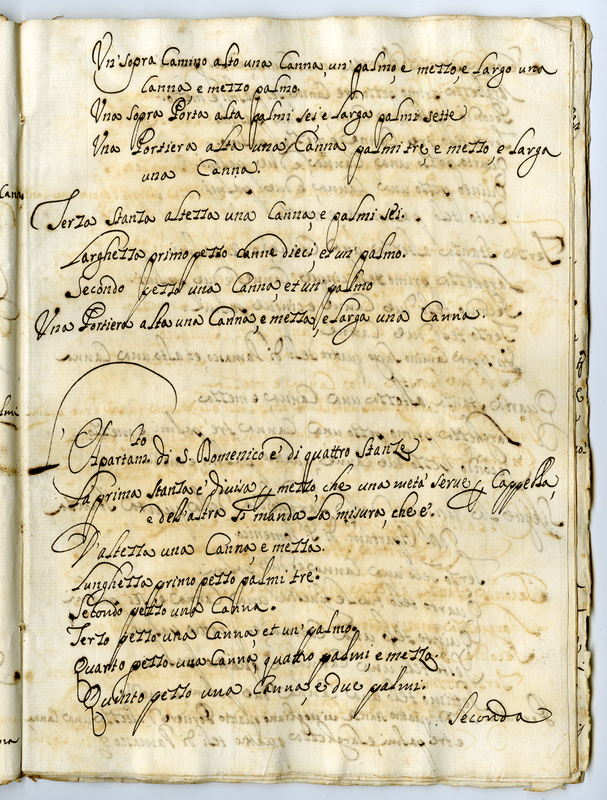 Un' sopra Camino alto una Canna, un' palmo, e mezzo, e largo una
Canna, e mezzo palmo.
Una sopra Porta alta palmi sei, e larga palmi sette
Una Portiera alta una Canna palmi tre, e mezzo, e larga
una Canna.
Terza Stanza altezza una Canna, e palmi sei.
Larghezza primo pezzo canne dieci, et un' palmo.
Secondo pezzo una Canna, et un' palmo
Una Portiera alta una Canna, e mezza, e larga una Canna.
Apartam.to di S. Domenico è di quattro Stanze
La prima stanza è divisa p mezzo, che una metà serve p Cappella,
e dell'altra si manda la misura, che è.
D'altezza una Canna, e mezza.
Lunghezza primo pezzo palmi tre.
Secondo pezzo una Canna.
Terzo pezzo una Canna, et un' palmo.
Quarto pezzo una Canna, quattro palmi, e mezzo.
Quinto pezzo una Canna, e due palmi.
Seconda